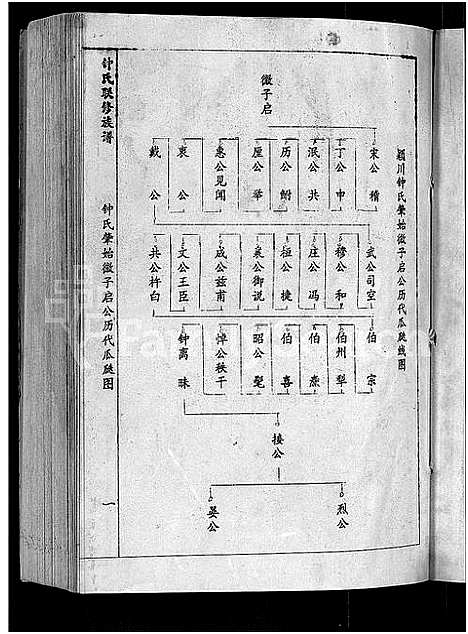 颖川钟氏肇始微子启公历代瓜瓞线图
微子启
宋公稽
丁公申
泯公共
历公鲋
厘公举
惠公见闻
哀公
戴公
武公司空
穆公和
庄公冯
桓公捷
襄公御说
成公兹甫
文公王臣
共公杵臼
伯宗
伯州犁
伯焘
伯喜
昭公髦
悼公秩干
钟离昧
接公
烈公
晏公
钟氏联修族谱
钟氏肇始微子启公历代瓜瓞图
一